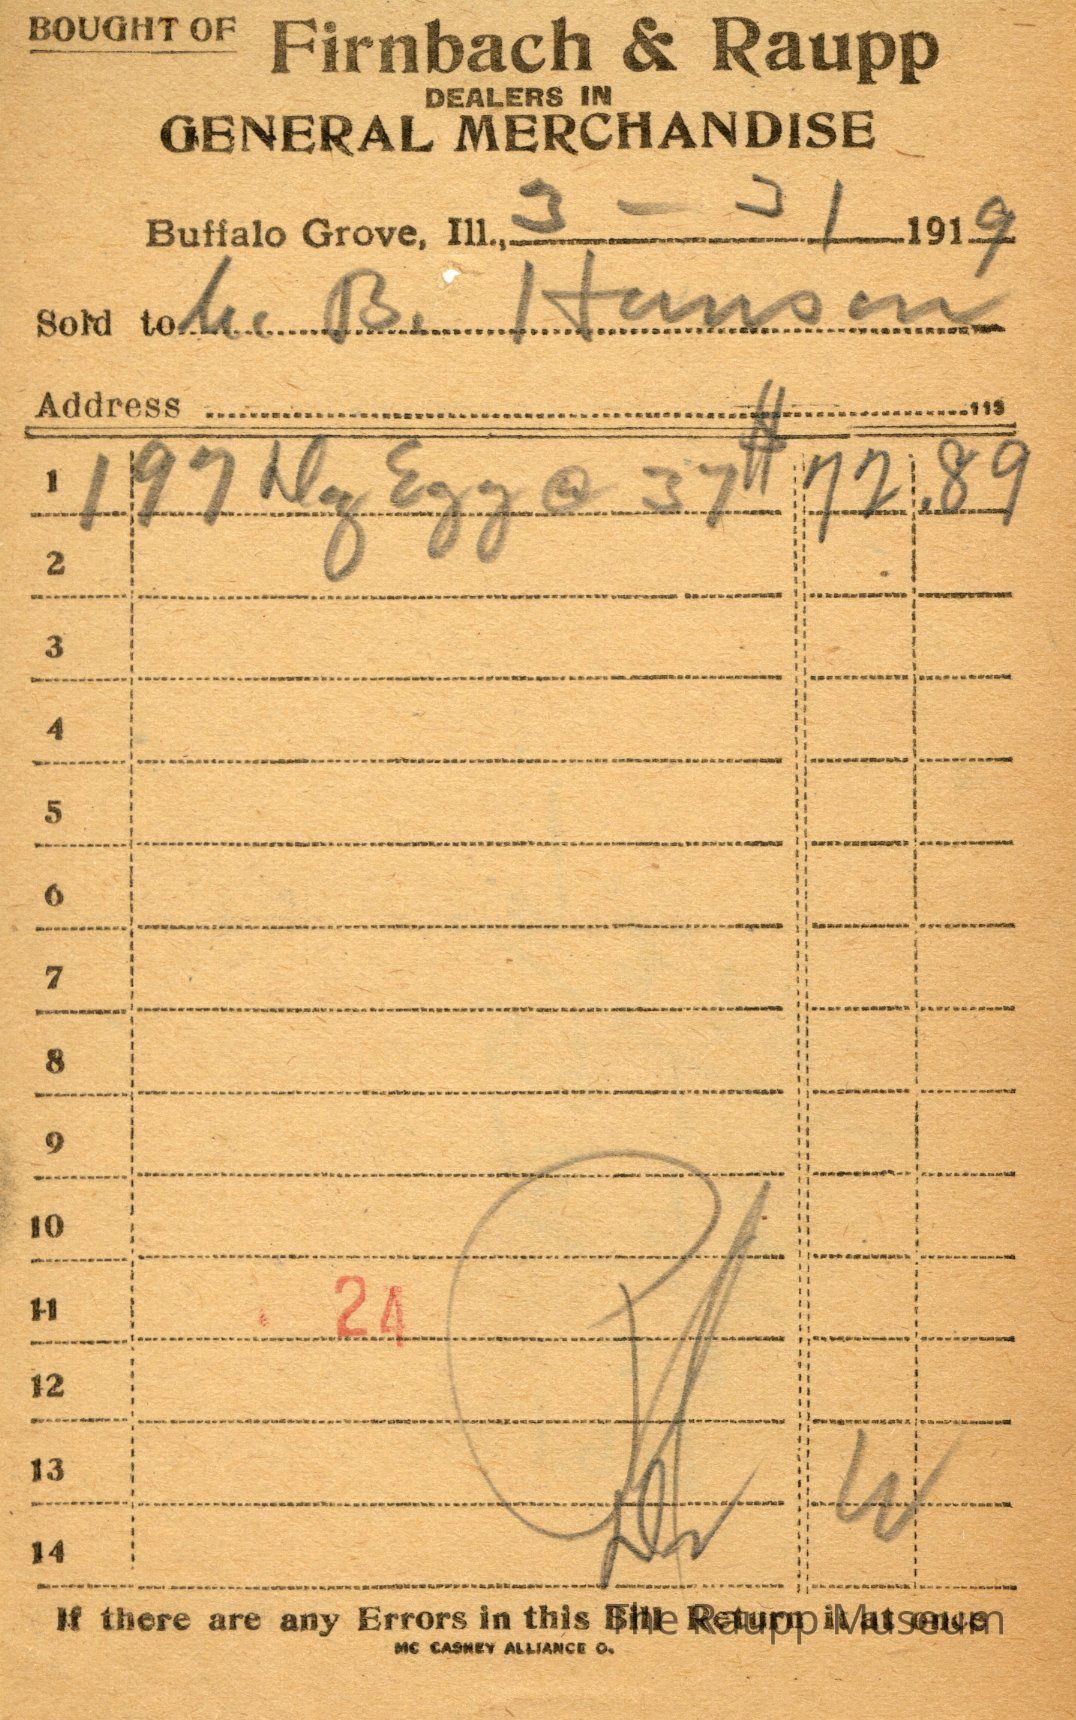 BOUGHT OF Firnbach & Raupp
DEALERS IN
GENERAL MERCHANDISE
Buffalo Grove, Ill., 3 - 31 1919
Sold to B. Hanson
Address
113
1 197 Dz Egg @ 37 # 72.89
2
3
4
5
6
7
8
9
10
24
11
12
13 W
14
If there are any Errors in this Bill Return it at once
The Raupp Museum
MC CASKEY ALLIANCE O.